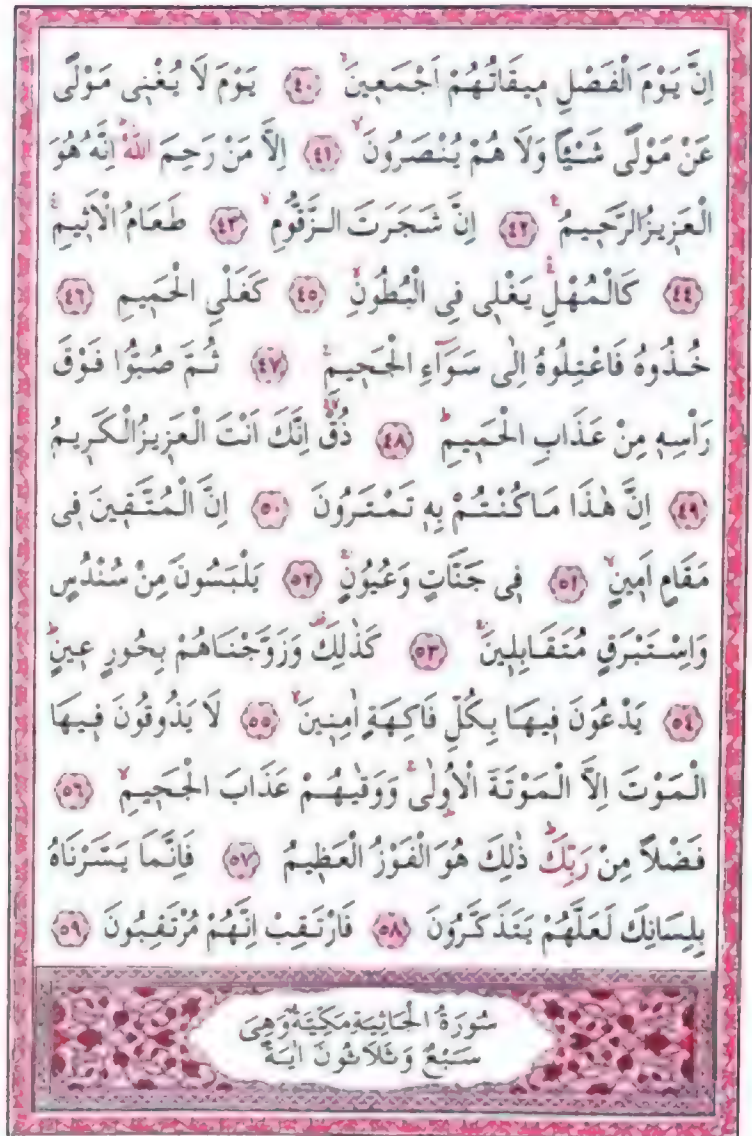 اِنَّ يَوْمَ الْفَصْلِ مٖيقَاتُهُمْ اَجْمَعٖينَۙ ﴿٤٠﴾ يَوْمَ لَا يُغْنٖى مَوْلًى
عَنْ مَوْلًى شَيْـًٔا وَلَا هُمْ يُنْصَرُونَۙ ﴿٤١﴾ اِلَّا مَنْ رَحِمَ اللّٰهُؕ اِنَّهُ هُوَ
الْعَزٖيزُ الرَّحٖيمُࣖ ﴿٤٢﴾ اِنَّ شَجَرَتَ الزَّقُّومِۙ ﴿٤٣﴾ طَعَامُ الْاَثٖيمِۚۛ
﴿٤٤﴾ كَالْمُهْلِۚۛ يَغْلٖى فِى الْبُطُونِۙ ﴿٤٥﴾ كَغَلْىِ الْحَمٖيمِ ﴿٤٦﴾
خُذُوهُ فَاعْتِلُوهُ اِلٰى سَوَٓاءِ الْجَحٖيمِۗ ﴿٤٧﴾ ثُمَّ صُبُّوا فَوْقَ
رَأْسِهٖ مِنْ عَذَابِ الْحَمٖيمِؕ ﴿٤٨﴾ ذُقْۙۚ اِنَّكَ اَنْتَ الْعَزٖيزُ الْكَرٖيمُ
﴿٤٩﴾ اِنَّ هٰذَا مَا كُنْتُمْ بِهٖ تَمْتَرُونَ ﴿٥٠﴾ اِنَّ الْمُتَّقٖينَ فٖى
مَقَامٍ اَمٖينٍۙ ﴿٥١﴾ فٖى جَنَّاتٍ وَعُيُونٍۚ ﴿٥٢﴾ يَلْبَسُونَ مِنْ سُنْدُسٍ
وَاِسْتَبْرَقٍ مُتَقَابِلٖينَۚ ﴿٥٣﴾ كَذٰلِكَ۠ وَزَوَّجْنَاهُمْ بِحُورٍ عٖينٍؕ
﴿٥٤﴾ يَدْعُونَ فٖيهَا بِكُلِّ فَاكِهَةٍ اٰمِنٖينَۙ ﴿٥٥﴾ لَا يَذُوقُونَ فٖيهَا
الْمَوْتَ اِلَّا الْمَوْتَةَ الْاُولٰىۚ وَوَقٰيهُمْ عَذَابَ الْجَحٖيمِۙ ﴿٥٦﴾
فَضْلًا مِنْ رَبِّكَؕ ذٰلِكَ هُوَ الْفَوْزُ الْعَظٖيمُ ﴿٥٧﴾ فَاِنَّمَا يَسَّرْنَاهُ
بِلِسَانِكَ لَعَلَّهُمْ يَتَذَكَّرُونَ ﴿٥٨﴾ فَارْتَقِبْ اِنَّهُمْ مُرْتَقِبُونَ ﴿٥٩﴾
سُورَةُ الْجَاثِيَةِ مَكِّيَّةٌ وَهِىَ
سَبْعٌ وَثَلَاثُونَ اٰيَةً